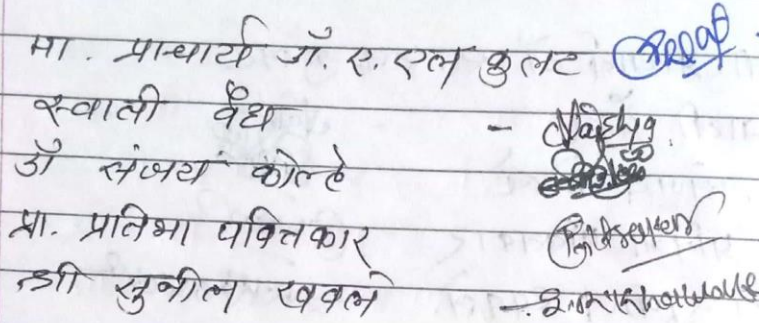 मा. प्राचार्य डॉ. ए. एल कुलट
स्वाती वैद्य - Vaidya
डॉ संजय कोल्हे
प्रा. प्रतिभा पवित्रकार
श्री सुनील खवले -